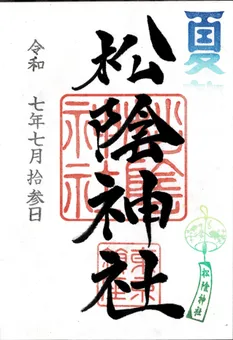 夏
松陰神社
令和
七年七月拾参日
松陰神社